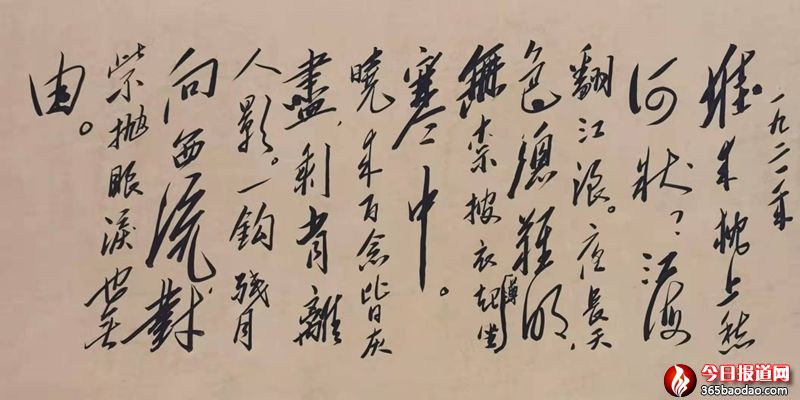 一九二一年
堆来枕上愁
何状？江海
翻江浪。夜長天
色總難明，
無奈披衣起坐薄
寒中。
曉来百念皆灰
盡，剩有離
人影。一鈎殘月
向西流，對
此不抛眼淚也無
由。
今日报道网
365baodao.com